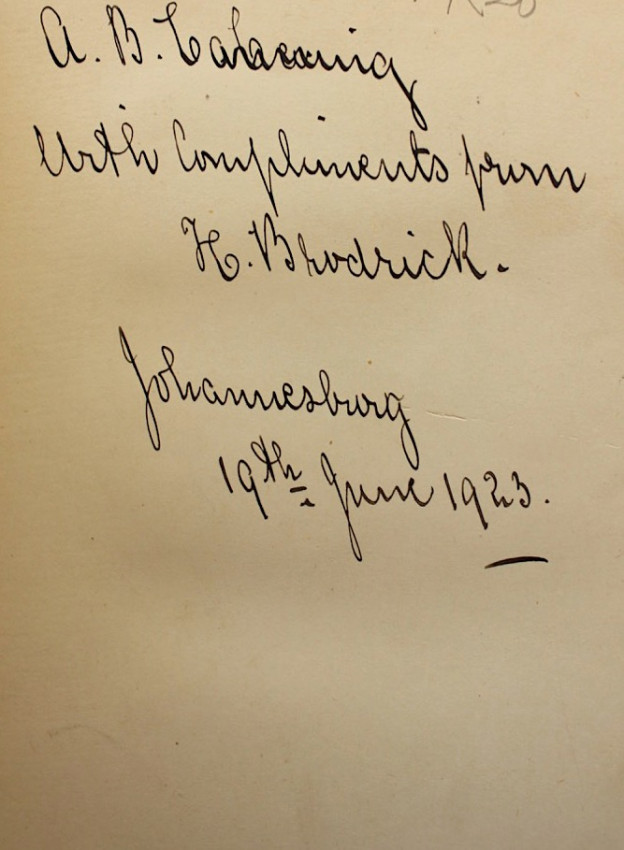 A. B.
With Compliments from
H. Brodrick.
Johannesburg
19th June 1923.